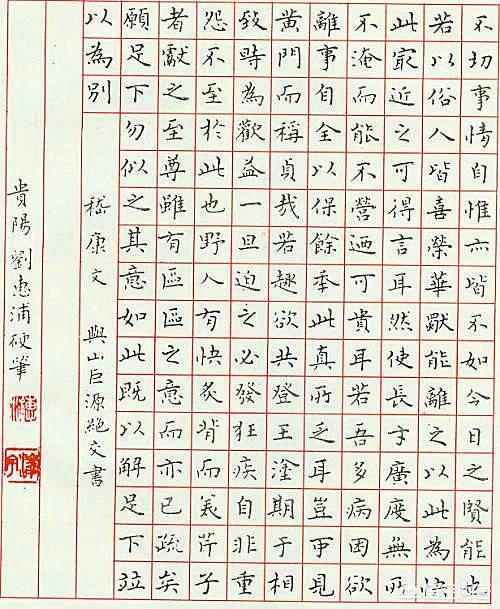 不切事情自惟亦皆不如今日之賢能也
若以俗人皆喜榮華獸能離之以此為快
此最近之可得言耳然使長才廣度無所
不淹而能不營迺可貴耳若吾多病困欲
離事自全以保餘年此真所乏耳豈可見
黃門而稱貞哉若趣欲共登王塗期于相
致時為歡益一旦迫之必發狂疾自非重
怨不至於此也野人有快炙背而美芹子
者獻之至尊雖有區區之意而亦已疏矣
願足下勿似之其意如此既以解足下竝
以為別 嵇康文 與山巨源絕交書
貴陽劉惠浦硬筆